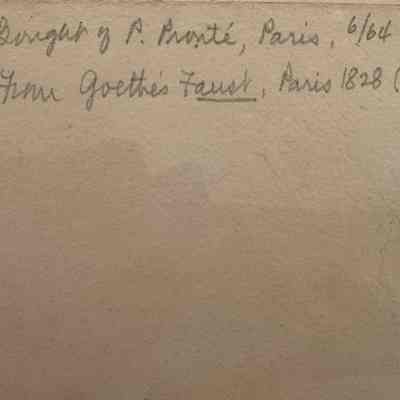 Bought of P. Prouté, Paris, 6/64
From Goethe's Faust, Paris 1828 (